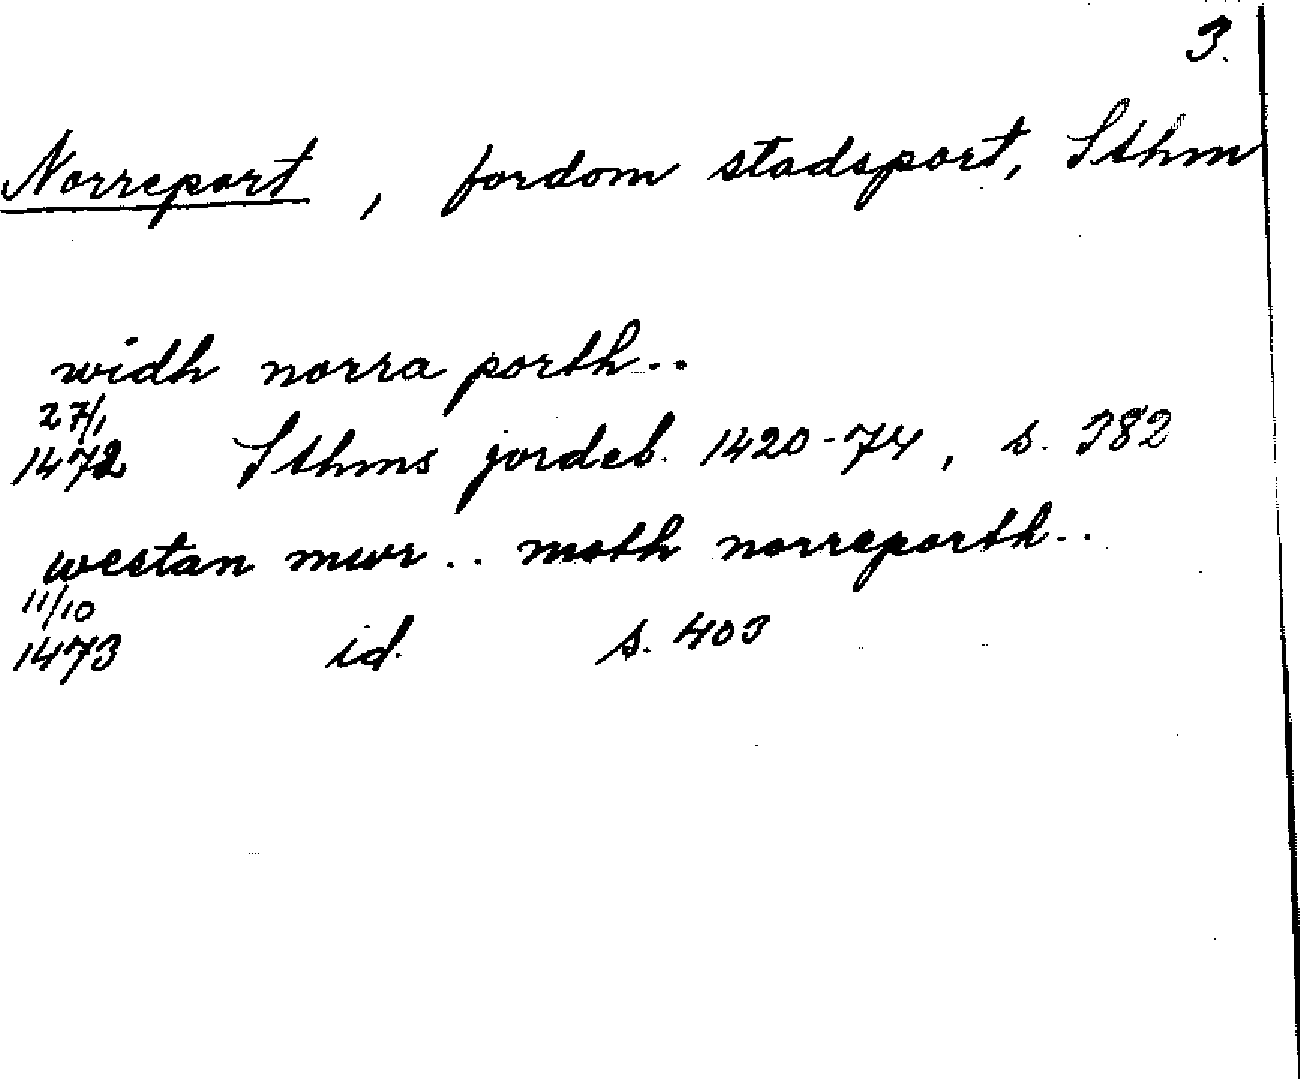 3.
Norreport, fordom stadsport, Sthm
widh norra porth..
27/1
1472 Sthms jordeb. 1420-74, s. 382
westan mwr.. moth norreporth..
11/10
1473 id. s. 403